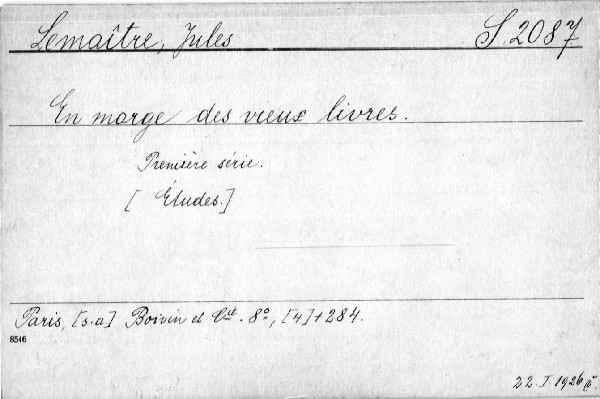 Lemaître, Jules S. 2087
En marge des vieux livres.
Première série.
[Études.]
Paris, [s.a] Boivin et Cie. 8º, [4]+284.
8546
22. I. 1926